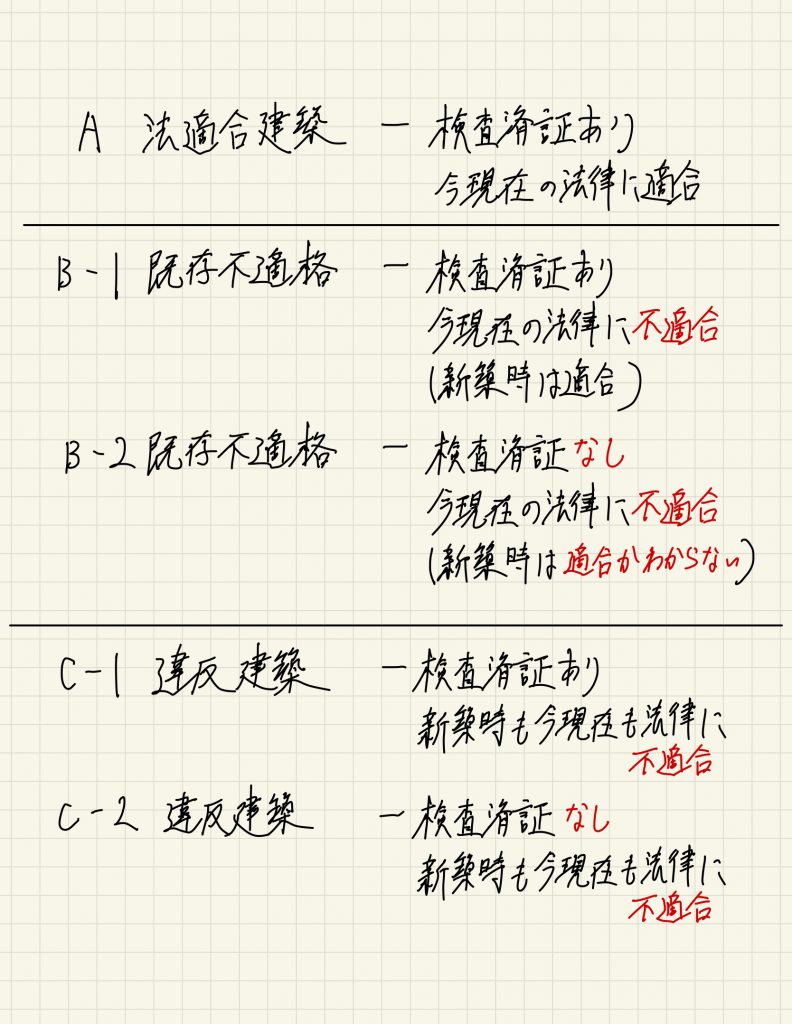 A 法適合建築 ー 検査済証あり
今現在の法律に適合
B-1 既存不適格 ー 検査済証あり
今現在の法律に不適合
(新築時は適合)
B-2 既存不適格 ー 検査済証なし
今現在の法律に不適合
(新築時は適合かわからない)
C-1 違反建築 ー 検査済証あり
新築時も今現在も法律に
不適合
C-2 違反建築 ー 検査済証なし
新築時も今現在も法律に
不適合